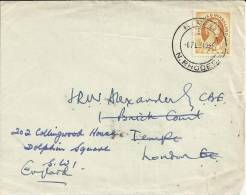 N. RHODESIA
J R W Alexander C B E
1 Brick Court
Temple
London
202 Collingwood House
Dolphin Square
S.W.1
England